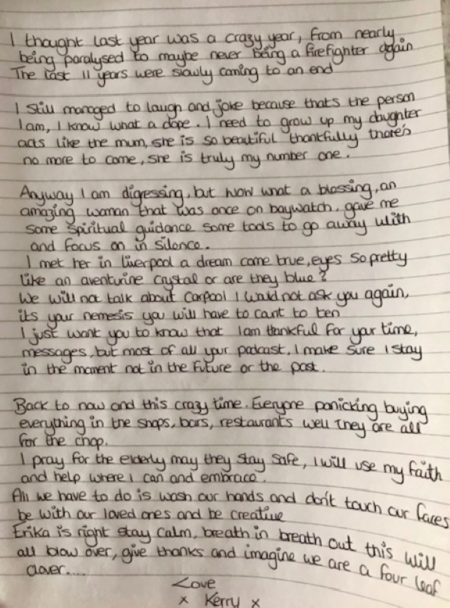 I thought last year was a crazy year, from nearly
being paralysed to maybe never being a firefighter again
The last 11 years were slowly coming to an end
I still managed to laugh and joke because thats the person
I am, I know what a dope. I need to grow up my daughter
acts like the mum, she is so beautiful thankfully there's
no more to come, she is truly my number one.
Anyway I am digressing, but Now what a blessing, an
amazing woman that was once on baywatch, gave me
some spiritual guidance some tools to go away with
and focus on in silence.
I met her in Liverpool a dream come true, eyes so pretty
like an aventurine crystal or are they blue?
We will not talk about Carpool I would not ask you again,
its your nemesis you will have to count to ten
I just want you to know that I am thankful for your time,
messages, but most of all your podcast, I make sure I stay
in the moment not in the future or the past.
Back to now and this crazy time. Everyone panicking buying
everything in the shops, bars, restaurants well they are all
for the chop.
I pray for the elderly may they stay safe, I will use my faith
and help where I can and embrace.
All we have to do is wash our hands and don't touch our faces
be with our loved ones and be creative
Erika is right stay calm, breath in breath out this will
all blow over, give thanks and imagine we are a four leaf
clover....
Love
x Kerry x